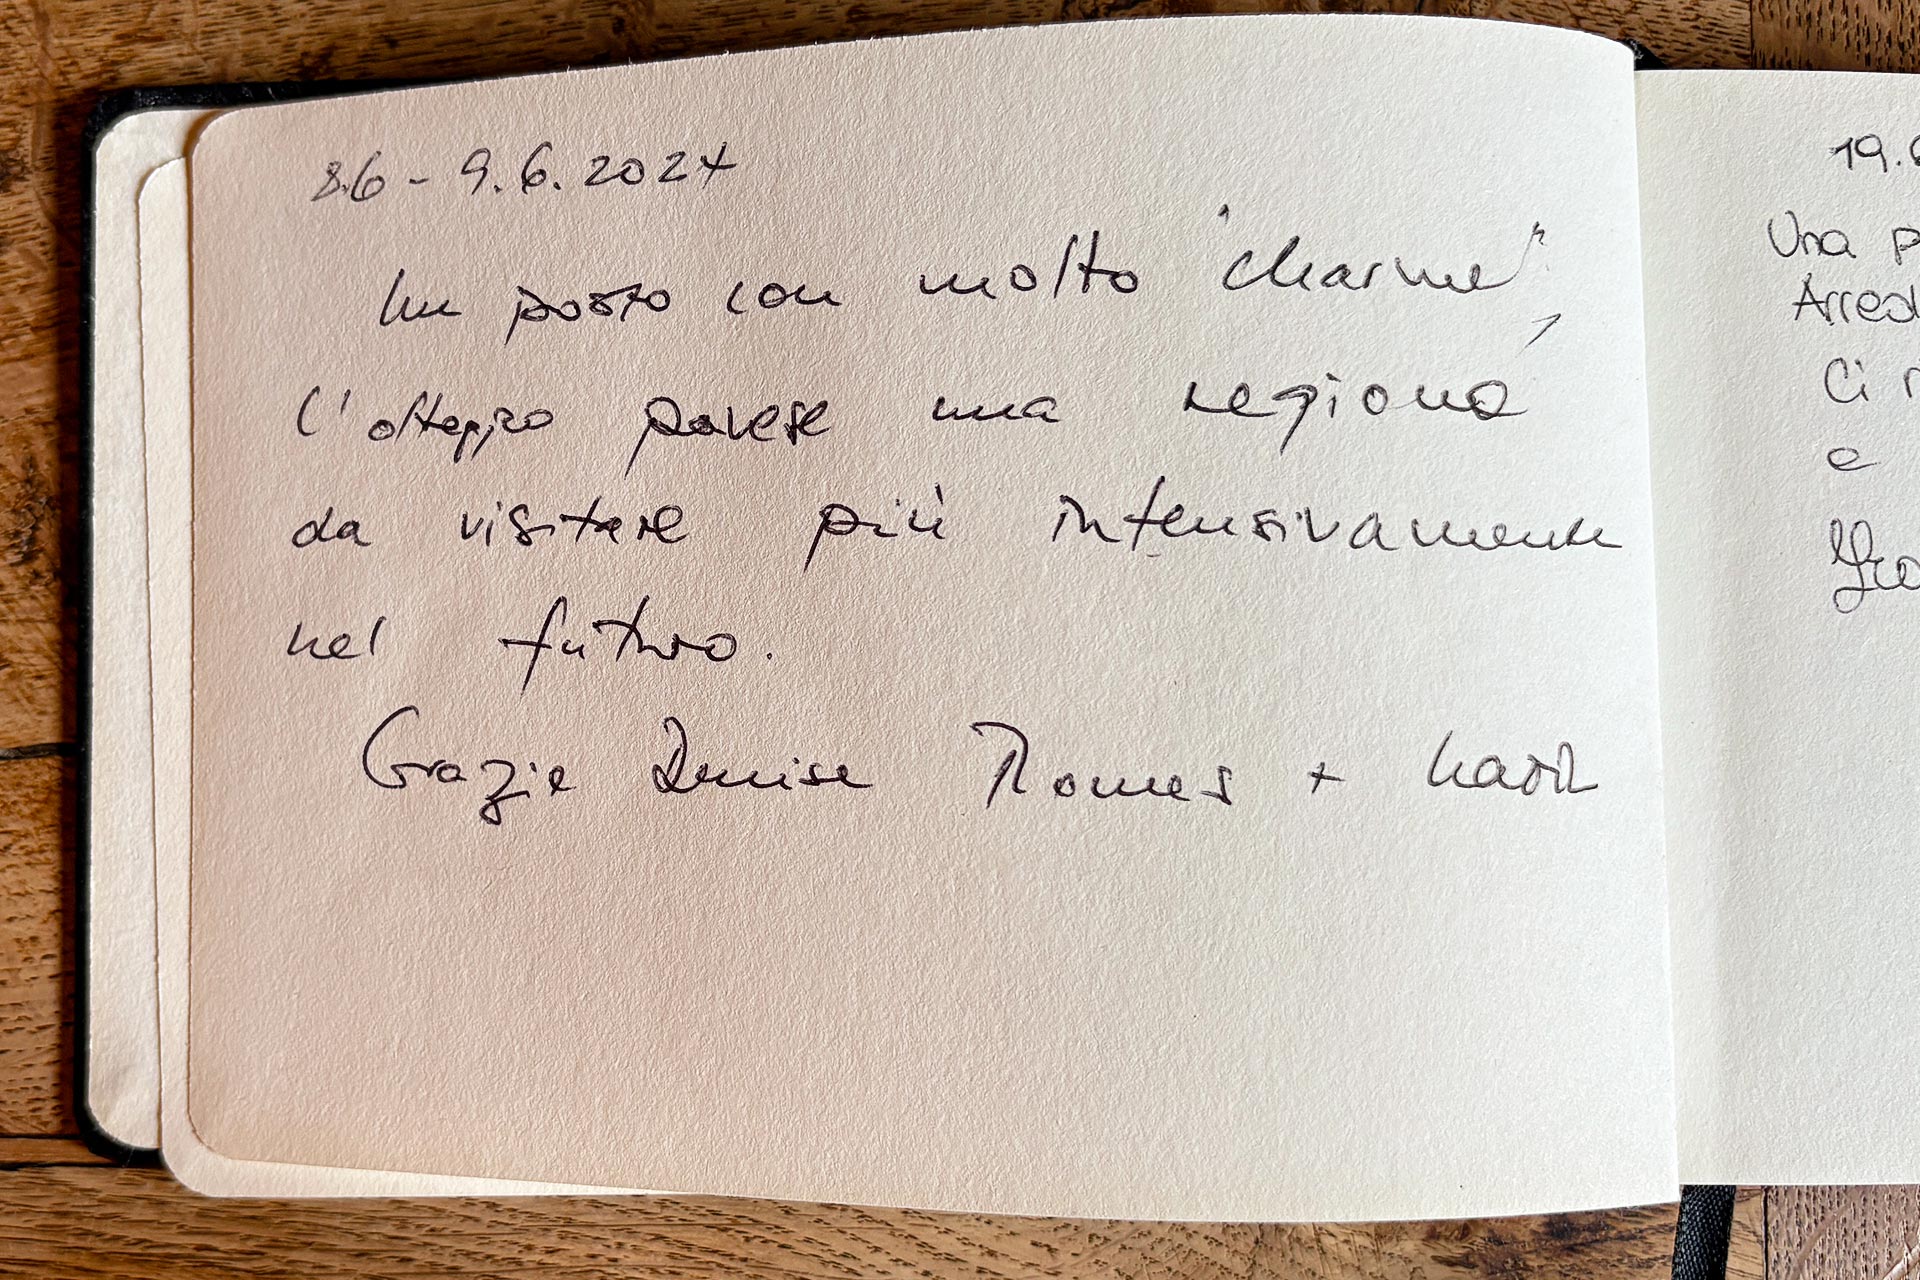 8.6 - 9.6.2024
Un posto con molto "charme",
l'oltreppo pavese una regione
da visitare più intensivamente
nel futuro.
Grazie Denise Romer +
19.6
Una p
Arred
Ci r
e